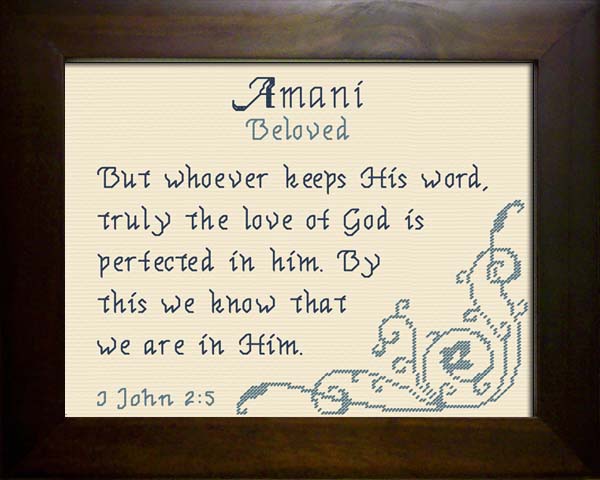 Amani
Beloved
But whoever keeps His word,
truly the love of God is
perfected in him. By
this we know that
we are in Him.
I John 2:5